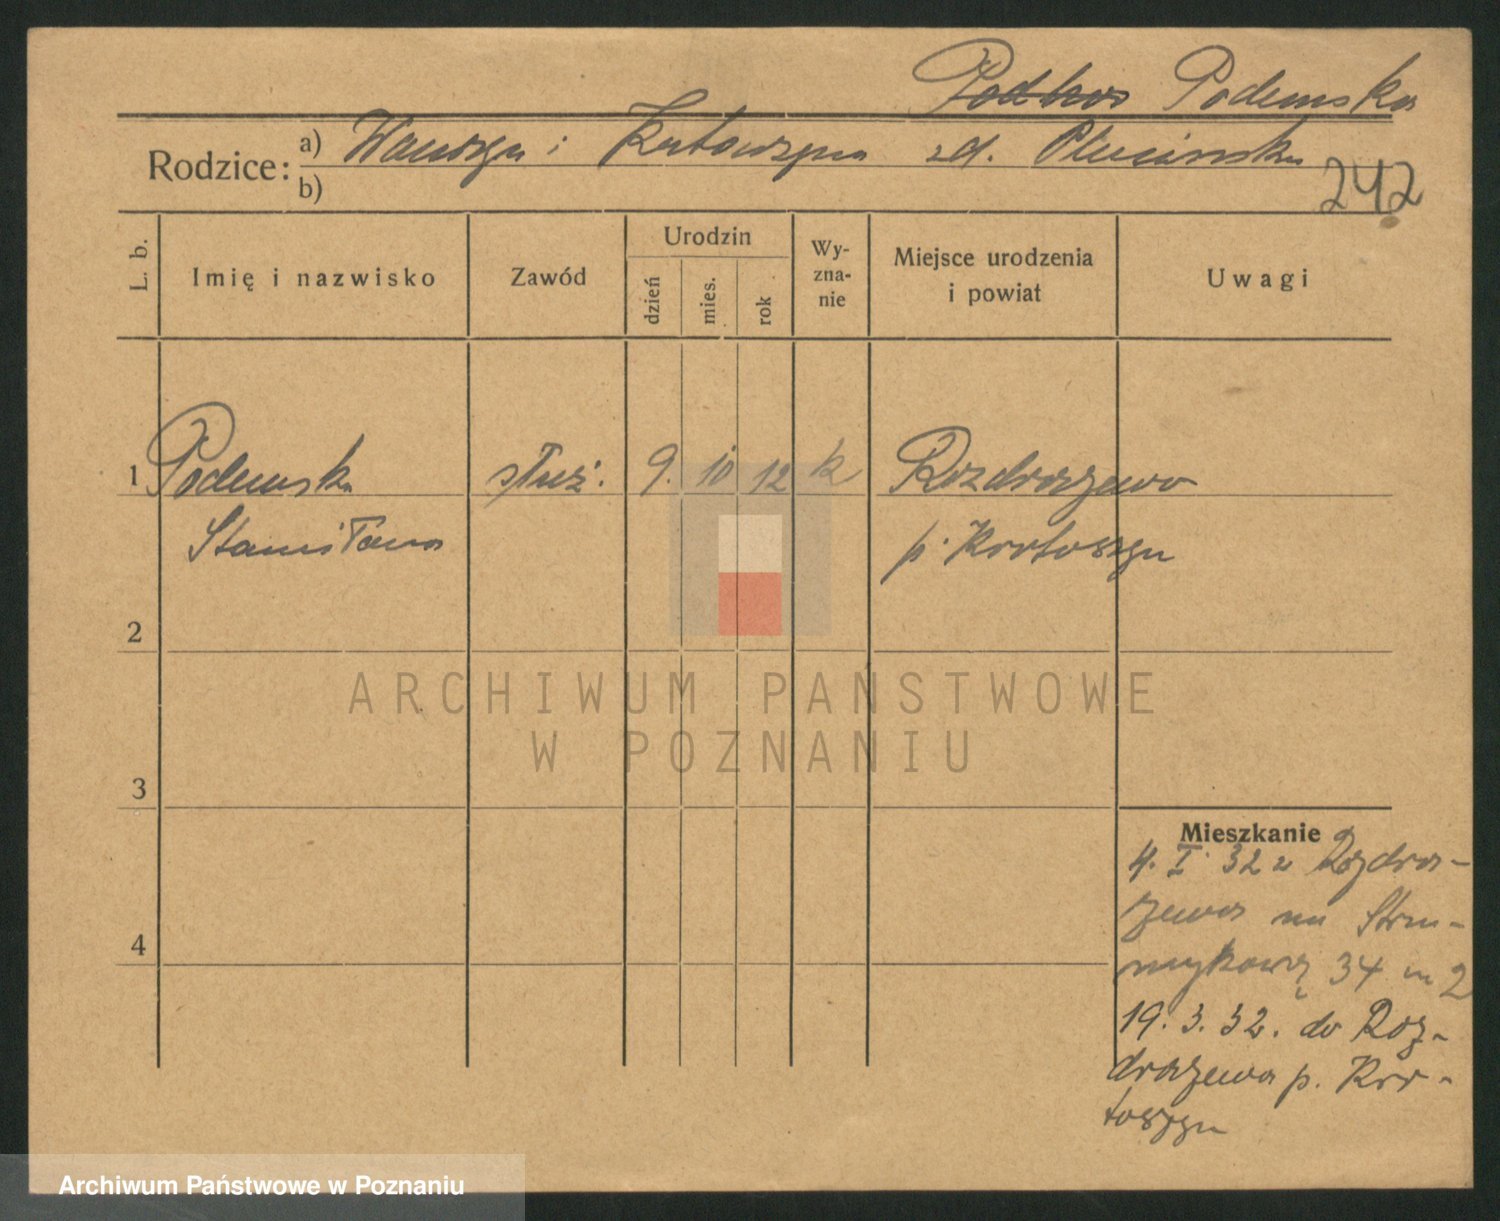 Podkos Podemska
Rodzice: a) Wawrzyn i Katarzyna zd. Plucińska
b)
242
L. b.
Imię i nazwisko
Zawód
Urodzin
dzień
mies.
rok
Wy-
zna-
nie
Miejsce urodzenia
i powiat
Uwagi
1 Podemska służ. 9. 10 12 k Rozdrażewo
Stanisława p. Krotoszyn
2
ARCHIWUM PAŃSTWOWE
W POZNANIU
3
Mieszkanie
4. I. 32 z Rozdra-
żewa na Stru-
mykową 34 m 2
4
19. 3. 32. do Roz-
drażewa p. Kro-
toszyn
Archiwum Państwowe w Poznaniu